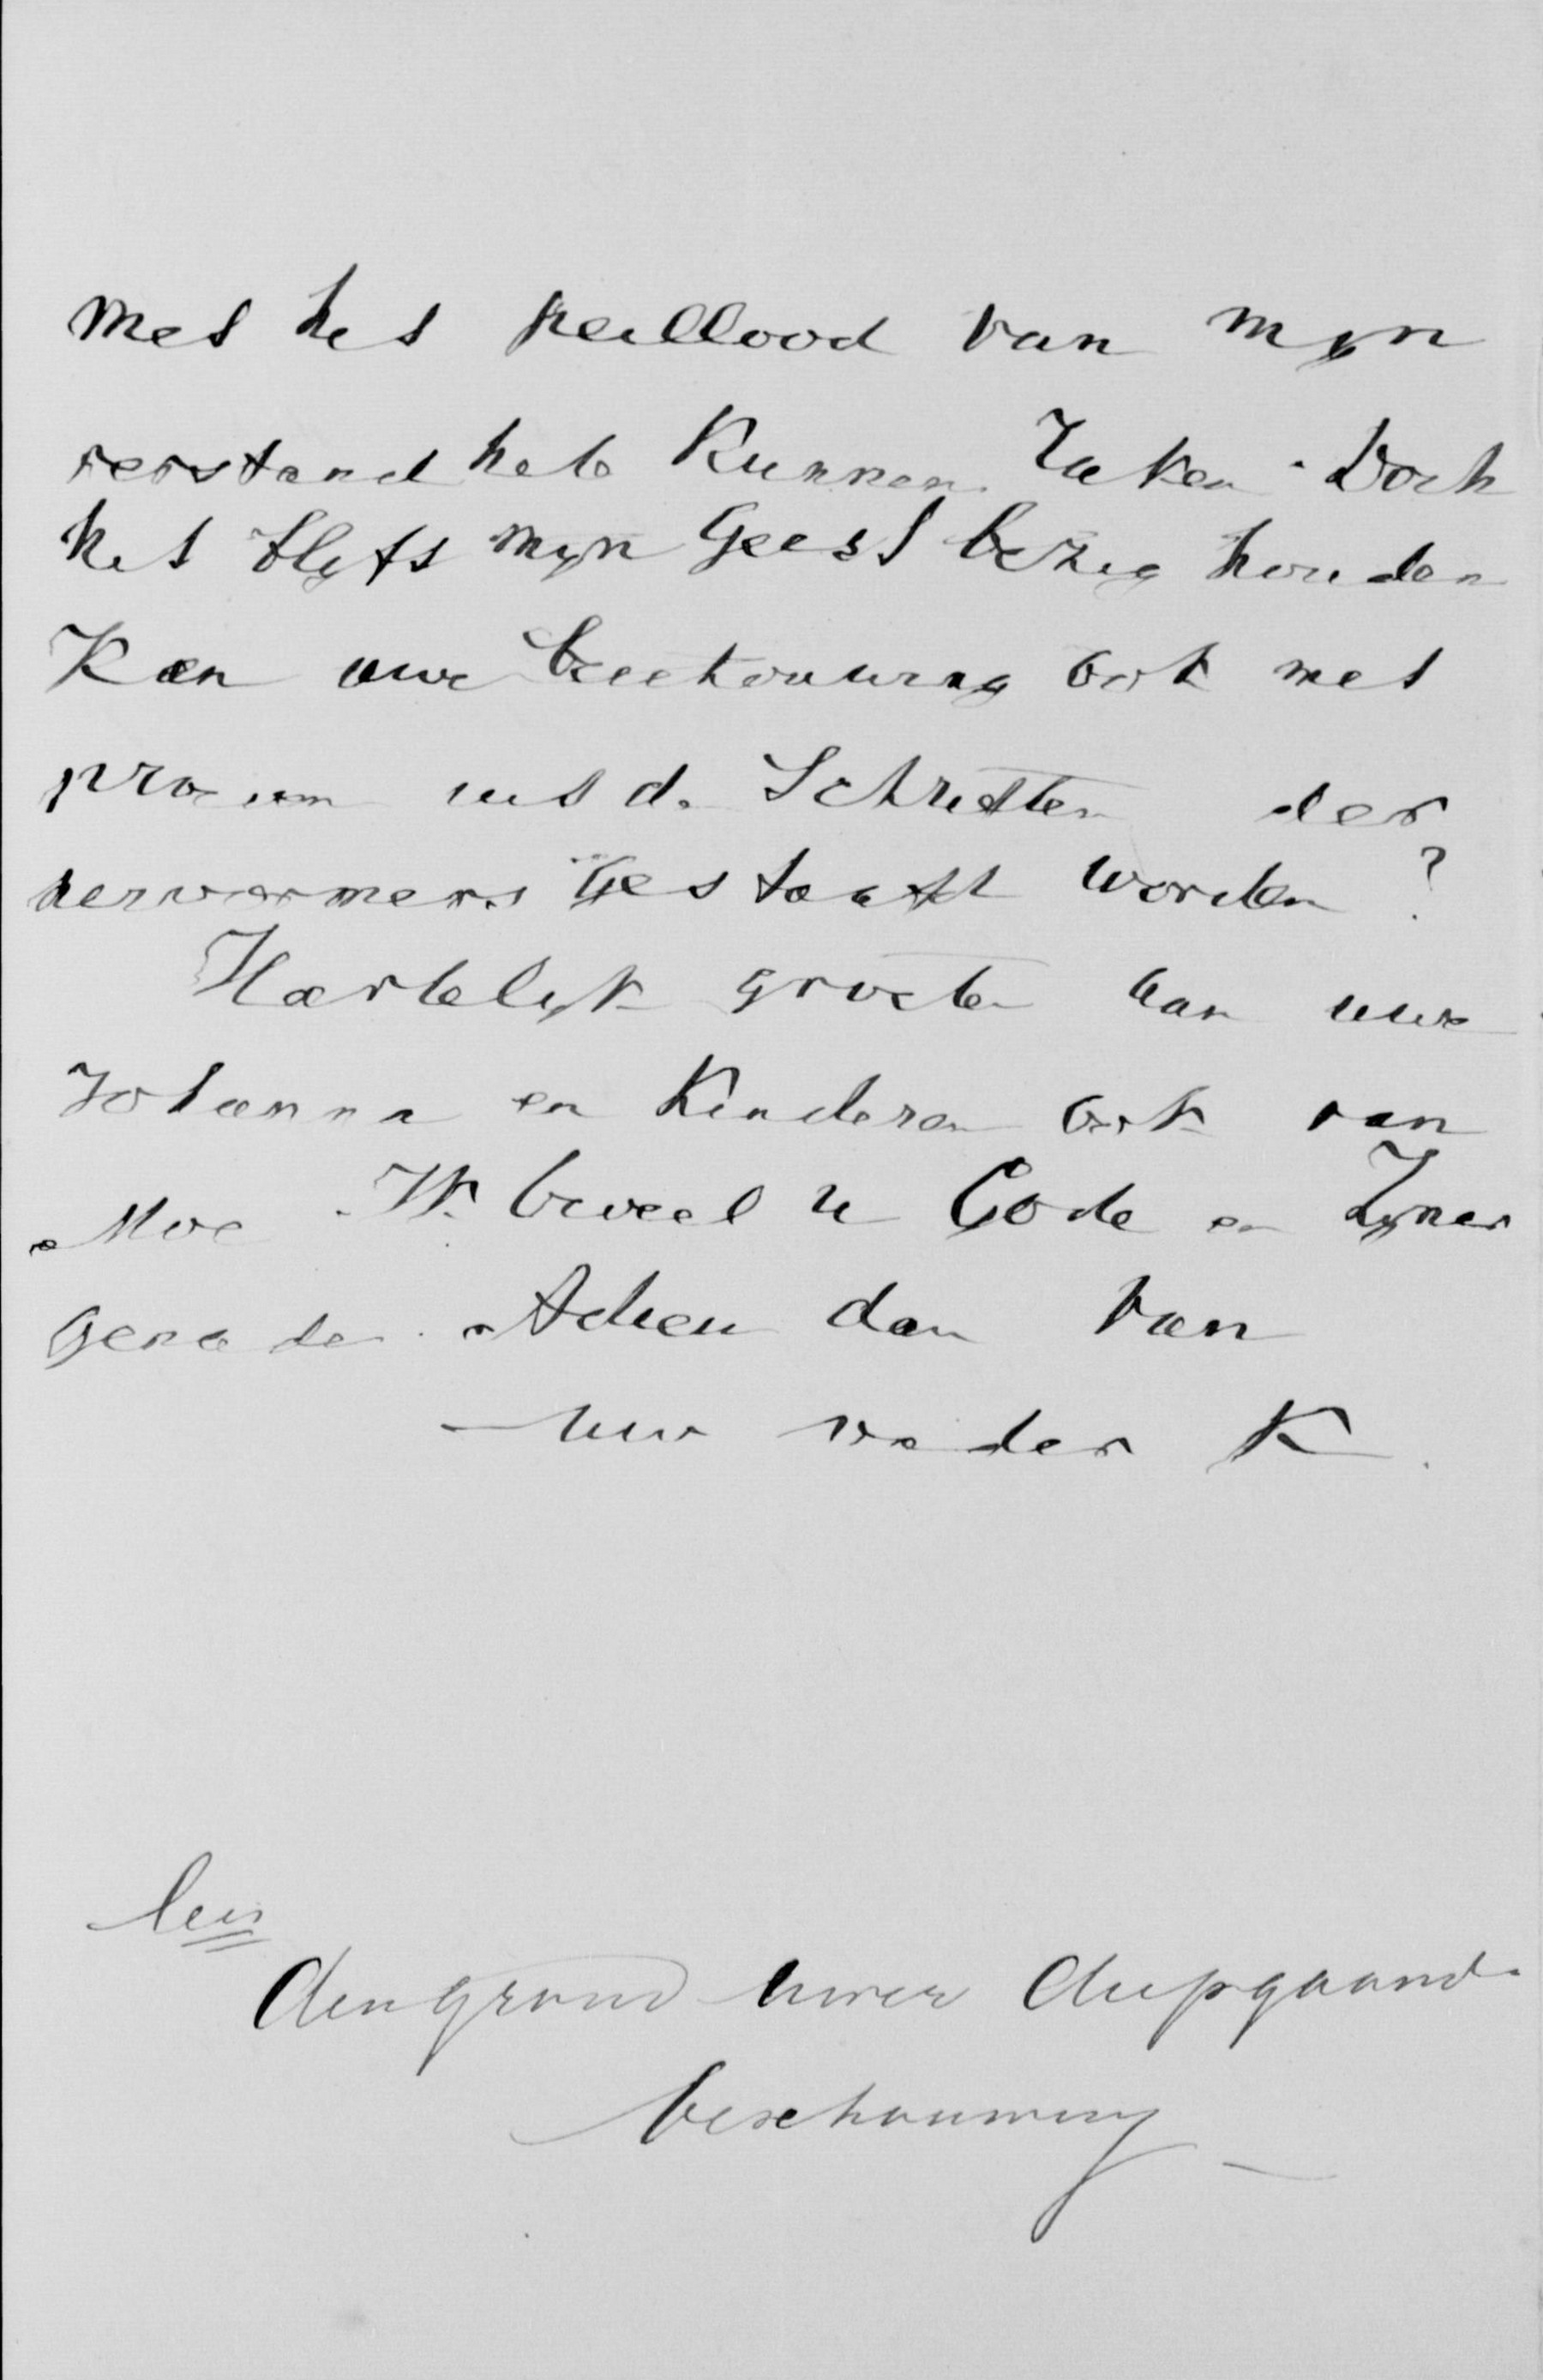 met het peillood van myn
verstand heb kunnen raken. Doch
het blyft myn Geest bezig houden
Kan uwe beschouwing ook met
uit de Schriften der
hervormers Gestaaft worden?
Hartelyk groeten aan uwe
Johanna en Kinderen ook van
Moe. Ik beveel u Gode en Zyner
Genade. Adieu dan van
uw vader K.
lees
den grond uwer diepgaande
beschouwing